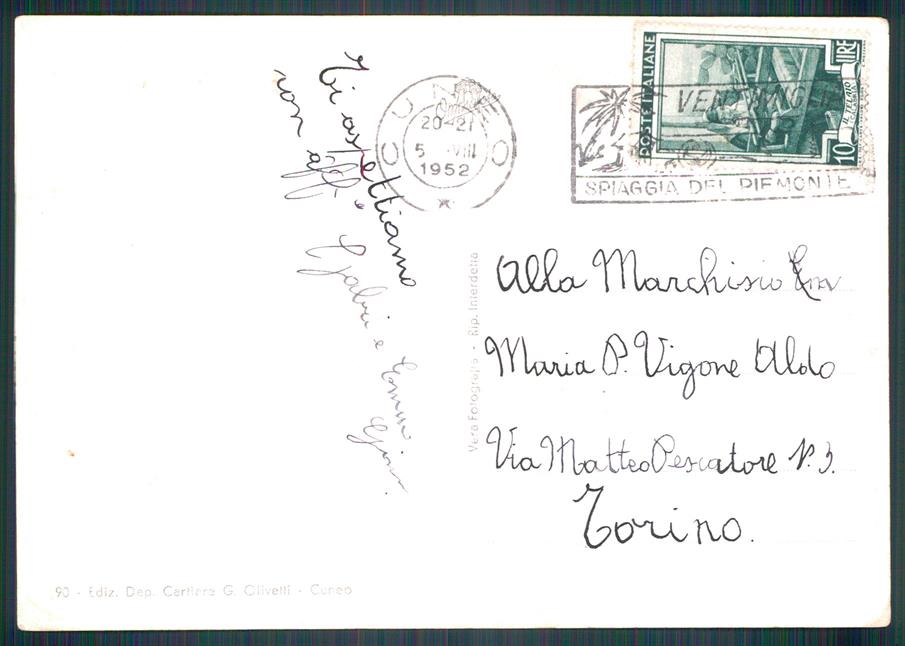 Ti aspettiamo
con aff.
Gabri e
CUNEO
20-21
5 VIII
1952
SPIAGGIA DEL PIEMONTE
POSTE ITALIANE
LIRE
10
IL TELAIO
Vera Fotografia - Rip. Interdetta
Alla Marchisio
Maria P. Vigone Aldo
Via Matteo Pescatore N. 3.
Torino.
90 - Ediz. Dep. Cartiera G. Olivetti - Cuneo